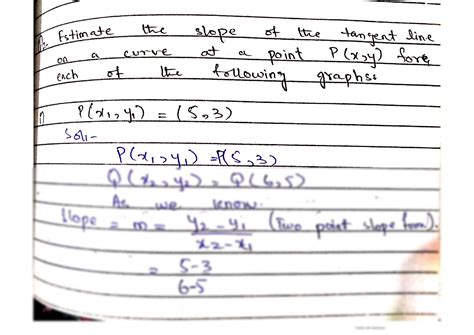 Q2. Estimate the slope of the tangent line
on a curve at a point P(x,y) for
each of the following graphs:
i) P(x₁,y₁) = (5,3)
Sol:-
P(x₁,y₁) = P(5,3)
Q(x₂,y₂) = Q(6,5)
As we know.
Slope = m = y₂-y₁ / x₂-x₁ (Two point slope form).
= 5-3 / 6-5